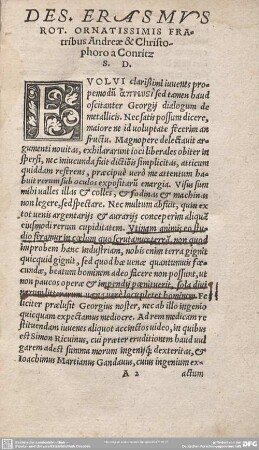 DES. ERASMVS
ROT. ORNATISSIMIS FRA-
tribus Andreæ & Christo-
phoro a Conritz
S. D.
EVOLVI clarissimi iuuenes pro-
pemodũ ἅπλυσι sed tamen haud
oscitanter Georgij dialogum de
metallicis. Nec satis possum dicere,
maiore ne id uoluptate fecerim an
fructu. Magnopere delectauit ar-
gumenti nouitas, exhilararunt ioci liberales obiter in
spersi, nec iniucunda fuit dictiõis simplicitas, atticum
quiddam referens, præcipuè uerò me attentum ha-
buit rerum sub oculos expositarũ energia. Visus sum
mihi ualles illas & colles, & fodinas & machinas
non legere, sed spectare. Nec multum abfuit, quin ex
tot uenis argentarijs & aurarijs conceperim aliquã
eiusmodi rerum cupiditatem. Vtinam animis eo stu-
dio feramur in cœlum quo scrutamur terrã, non quod
improbem hanc industriam, nobis enim terra gignit
quicquid gignit, sed quòd hæ uenæ quantumuis fœ-
cundæ, beatum hominem adeo facere non possunt, ut
non paucos operæ & impendij pœnituerit, sola diui
narum litterarum uena uerè locupletet hominem. Fe
liciter prælusit Georgius noster, nec ab illo ingenio
quicquam expectamus mediocre. Ad rem medicam re
stituendam iuuenes aliquot accinctos uideo, in quibus
est Simon Riquinus, cui præter eruditionem haud uul
garem adest summa morum ingenijq; dexteritas, &
Ioachimus Martianus Gandauus, cuius ingenium ex
A 2 actum